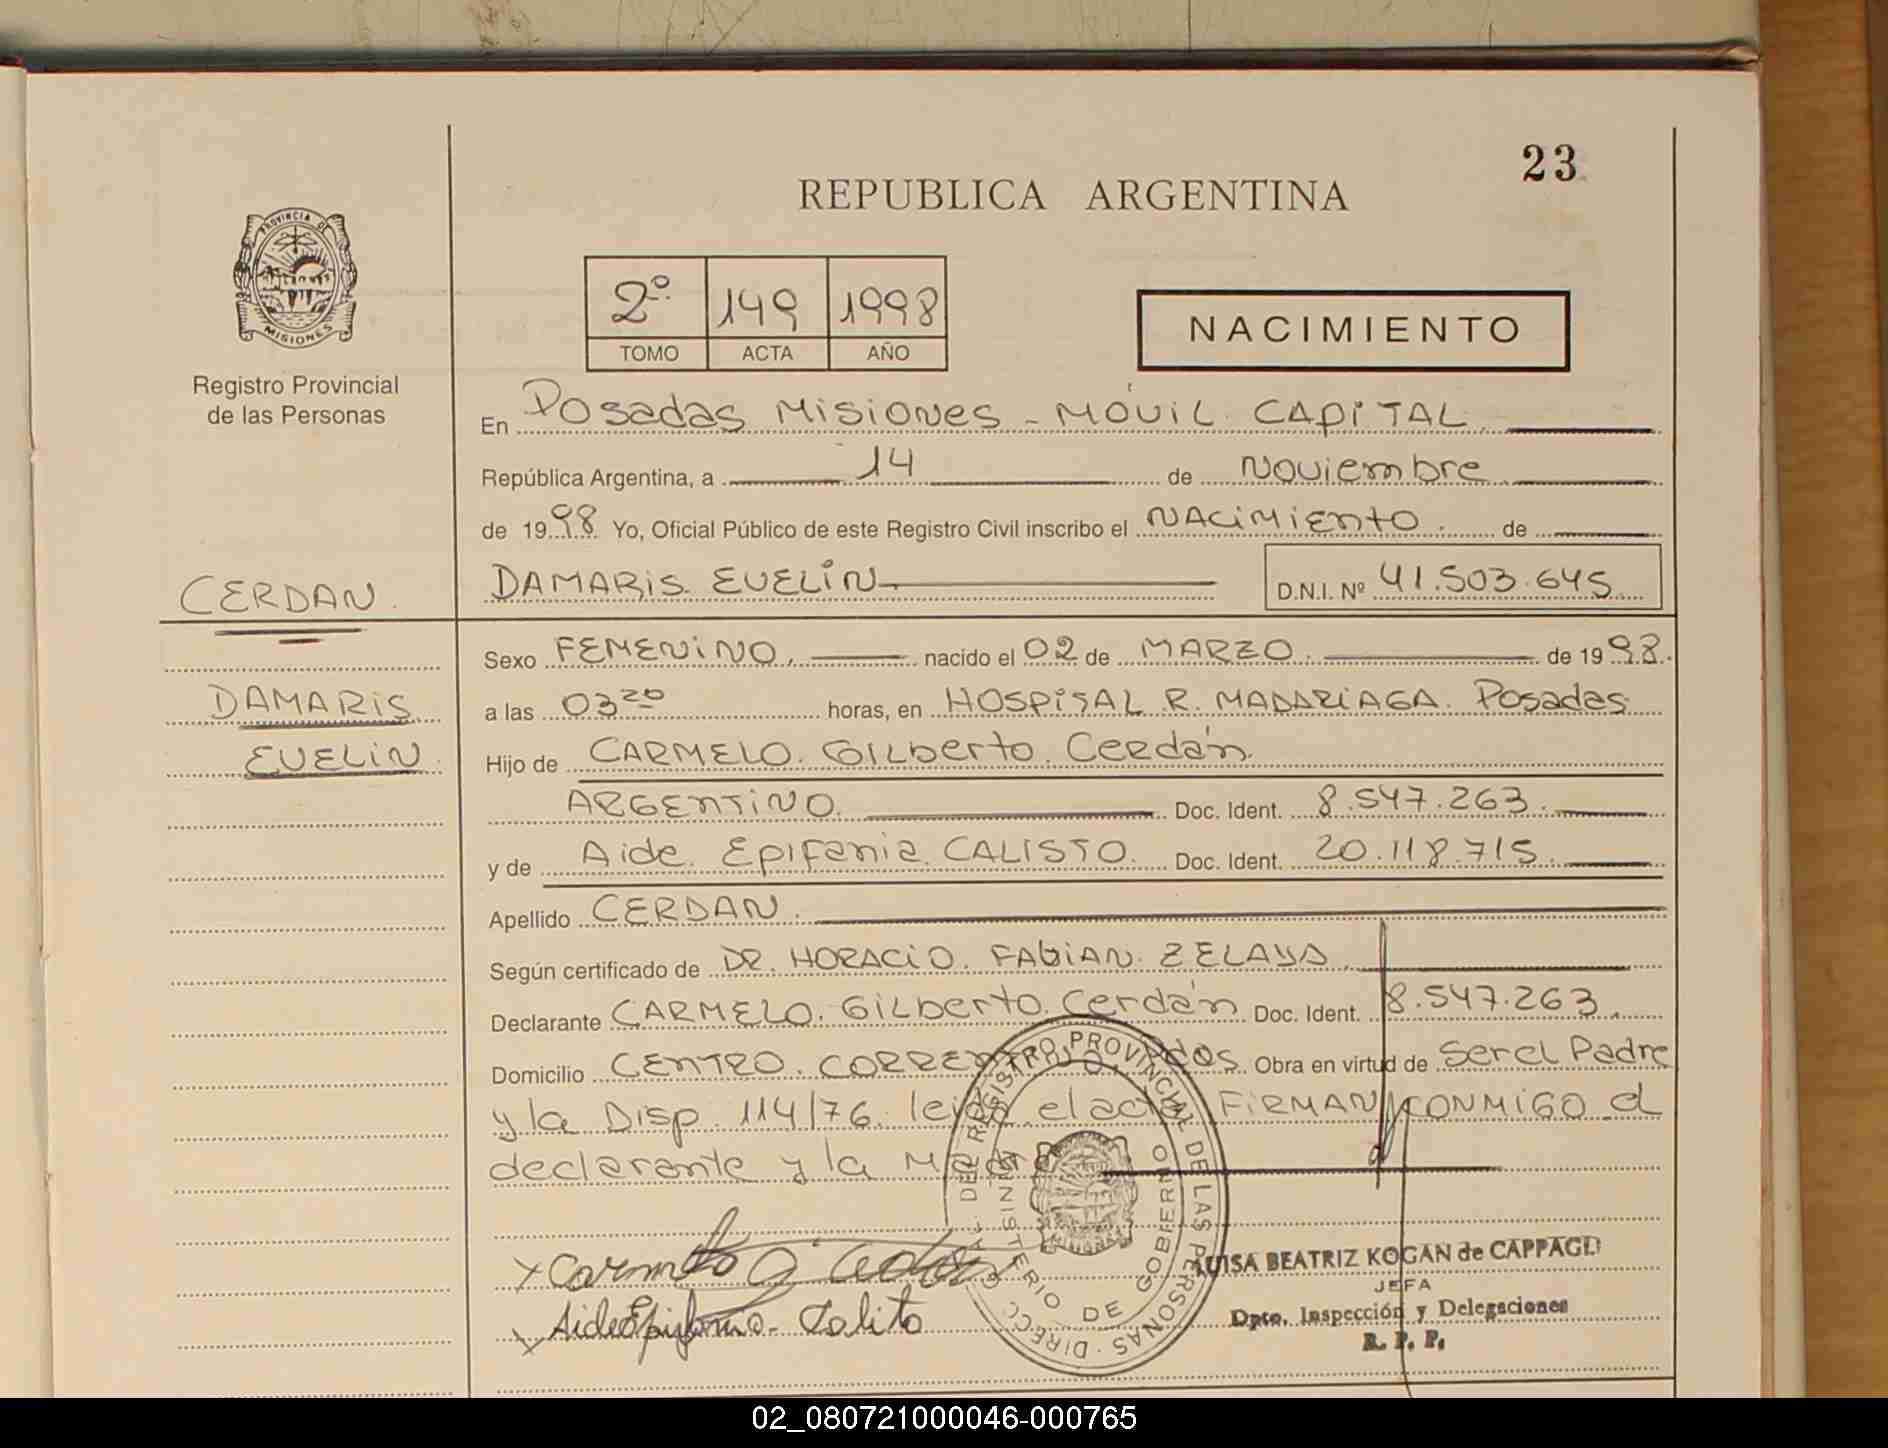 23
REPUBLICA ARGENTINA
PROVINCIA DE
MISIONES
Registro Provincial
de las Personas
2º 149 1998
TOMO ACTA AÑO
NACIMIENTO
En Posadas Misiones - MÓVIL CAPITAL
República Argentina, a 14 de Noviembre
de 1998 Yo, Oficial Público de este Registro Civil inscribo el NACIMIENTO. de
CERDAN.
DAMARIS EVELIN D.N.I. Nº 41.503.645
DAMARIS
EVELIN
Sexo FEMENINO, nacido el 02 de MARZO. de 1998.
a las 03 20 horas, en HOSPITAL R. MADARIAGA. Posadas
Hijo de CARMELO. GILberto. Cerdán.
ARGENTINO. Doc. Ident. 8.547.263.
y de Aide. Epifania. CALISTO. Doc. Ident. 20.118.715.
Apellido CERDAN.
Según certificado de DR. HORACIO. FABIAN. ZELAYA.
Declarante CARMELO. GILberto. Cerdán Doc. Ident. 8.547.263.
Domicilio CENTRO. Obra en virtud de Ser el Padre
y la Disp. 114/76. leida el acta FIRMAN CONMIGO el
declarante y la Madre
Aide Epifania. Calisto
DIRECC. GRAL. DEL REGISTRO PROVINCIAL DE LAS PERSONAS
MINISTERIO DE GOBIERNO
LUISA BEATRIZ KOGAN de CAPPAGLI
JEFA
Dpto. Inspección y Delegaciones
R. P. P.
02_080721000046-000765